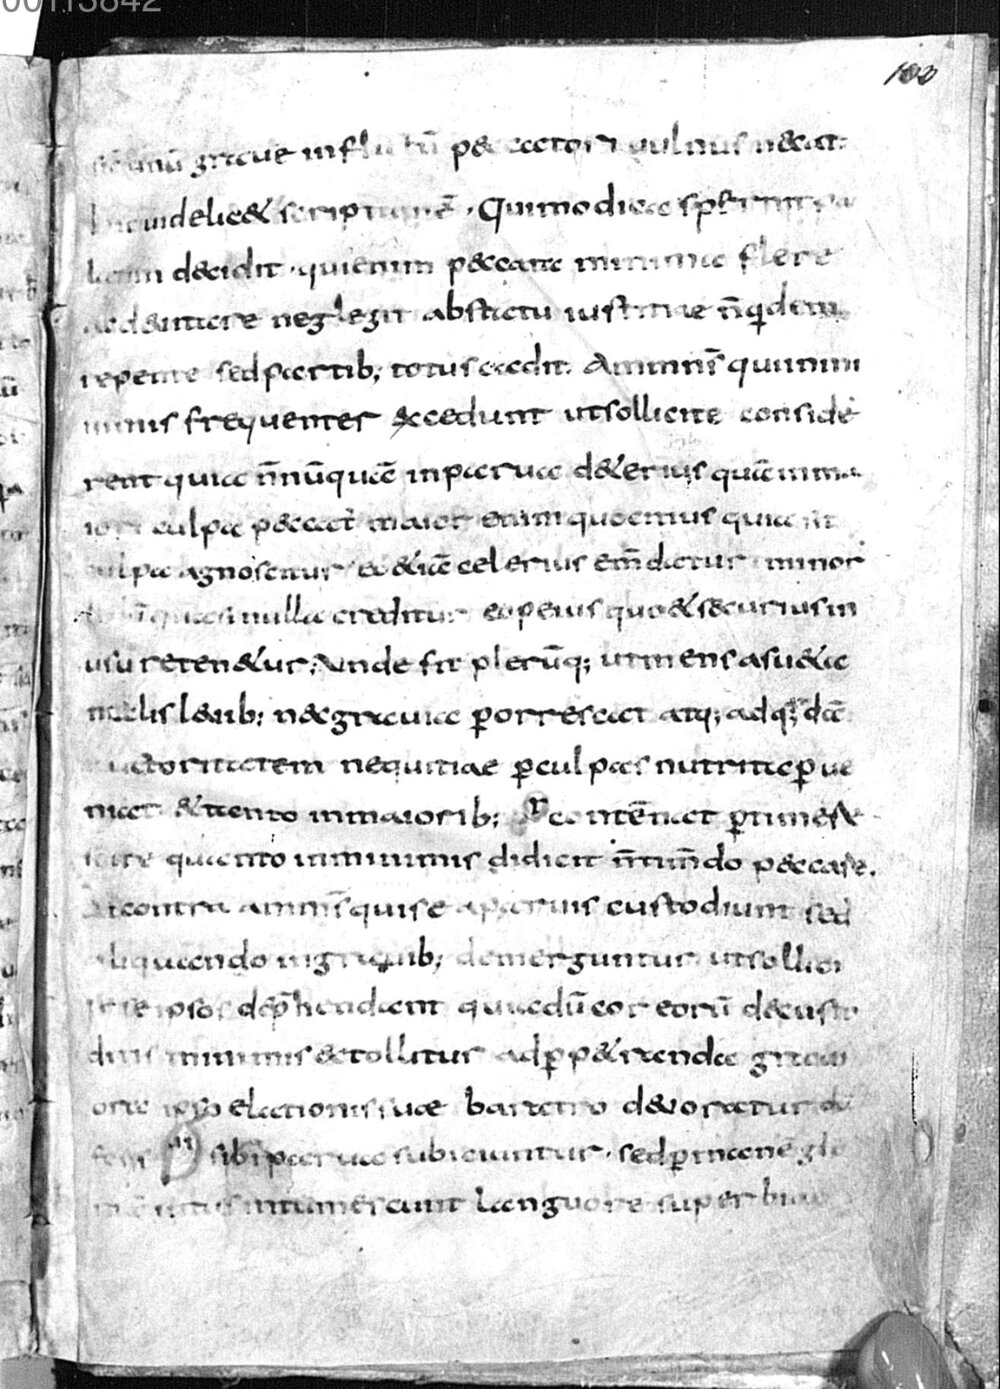 00113842
100
unū graue inflictū pectori uulnus necat.
uidelic& scriptū ē. Qui modica spernit pa
latim decidit. qui enim peccata minima flere
ac deuitare neglegit a bstatu iustitiae n̄ qidem
repente sed partib; totus cadit. Ammonēdi qui in mi
nimis frequenter excedunt ut sollicite conside
rent quia n̄nūquā in parua deterius quā in ma
iori culpa peccat̄ maior enim quo citius quia sit
culpa agnoscitur eo &iā celerius em̄datur minor
nulla creditur eo peius quo & securius in
usu reten&ur; Unde fit plerūq; ut mens asu&a
malis leuib; nec grauia ꝑorrescat atq; ad q̄dā
auctoritatem nequitiae ꝑ culpas nutrita ꝑue
niat & tanto in maiorib; contēnat ꝑtimes
cere quanto in minimis didicit n̄ timn̄do peccare.
At contra ammon̄ qui se a paruis custodiunt sed
aliquando in grauib; demerguntur ut sollici
te se ipsos dep̄hendant qui a dū cor eorū de custo
ditis minimis extollitur ad ꝑp&randa graui
ora ipso elationis suae baratro deuoratur
sibi parua subiciuntur. sed ꝑ inanē glo
riā intus intumescunt languore superbiae